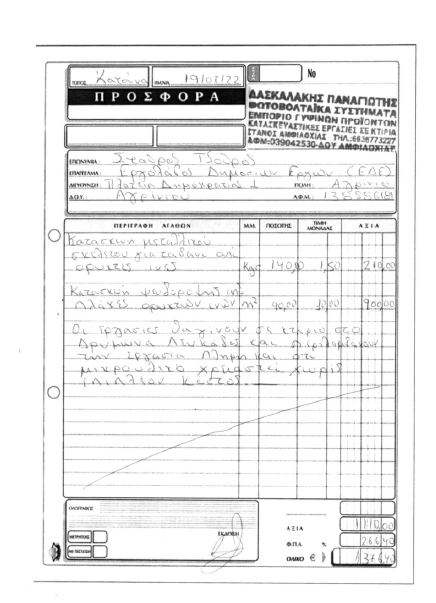 ΤΟΠΟΣ Κατούνα ΗΜ/ΝΙΑ 19/07/22
Νο
ΠΡΟΣΦΟΡΑ
ΔΑΣΚΑΛΑΚΗΣ ΠΑΝΑΓΙΩΤΗΣ
ΦΩΤΟΒΟΛΤΑΪΚΑ ΣΥΣΤΗΜΑΤΑ
ΕΜΠΟΡΙΟ ΓΥΨΙΝΩΝ ΠΡΟΪΟΝΤΩΝ
ΚΑΤΑΣΚΕΥΑΣΤΙΚΕΣ ΕΡΓΑΣΙΕΣ ΣΕ ΚΤΙΡΙΑ
ΣΤΑΝΟΣ ΑΜΦΙΛΟΧΙΑΣ ΤΗΛ.:6936773227
ΑΦΜ:039042530-ΔΟΥ ΑΜΦΙΛΟΧΙΑΣ
ΕΠΩΝΥΜΙΑ: Σταύρος
ΕΠΑΓΓΕΛΜΑ: Εργολάβος Δημοσίων Έργων (ΕΔΕ)
ΔΙΕΥΘΥΝΣΗ: Πλατεία Δημοκρατίας 1 ΠΟΛΗ: Αγρίνιο
Δ.Ο.Υ.: Αγρινίου Α.Φ.Μ.:
ΠΕΡΙΓΡΑΦΗ ΑΓΑΘΩΝ Μ.Μ. ΠΟΣΟΤΗΣ ΤΙΜΗ ΜΟΝΑΔΑΣ ΑΞΙΑ
Κατασκευή μεταλλικού
σκελετού για ταβάνι από
ορυκτές ίνες Kgr 140,0 1,50 210,00
Κατασκευή ψευδοροφής
πλάκες ορυκτών ινών m² 90,00 10,00 900,00
Οι εργασίες θα γίνουν σε κτίριο στο
Δρυμώνα Λευκάδος και περιλαμβάνουν
την εργασία πλήρη και ότι
μικροϋλικό χρειαστεί χωρίς
επιπλέον κόστος.
ΟΛΟΓΡΑΦΩΣ
ΜΕΤΡΗΤΟΙΣ
ΜΕ ΠΙΣΤΩΣΗ
ΕΚΔΟΣΗ
ΑΞΙΑ 1110,00
Φ.Π.Α. % 266,40
ΟΛΙΚΟ € 1376,40